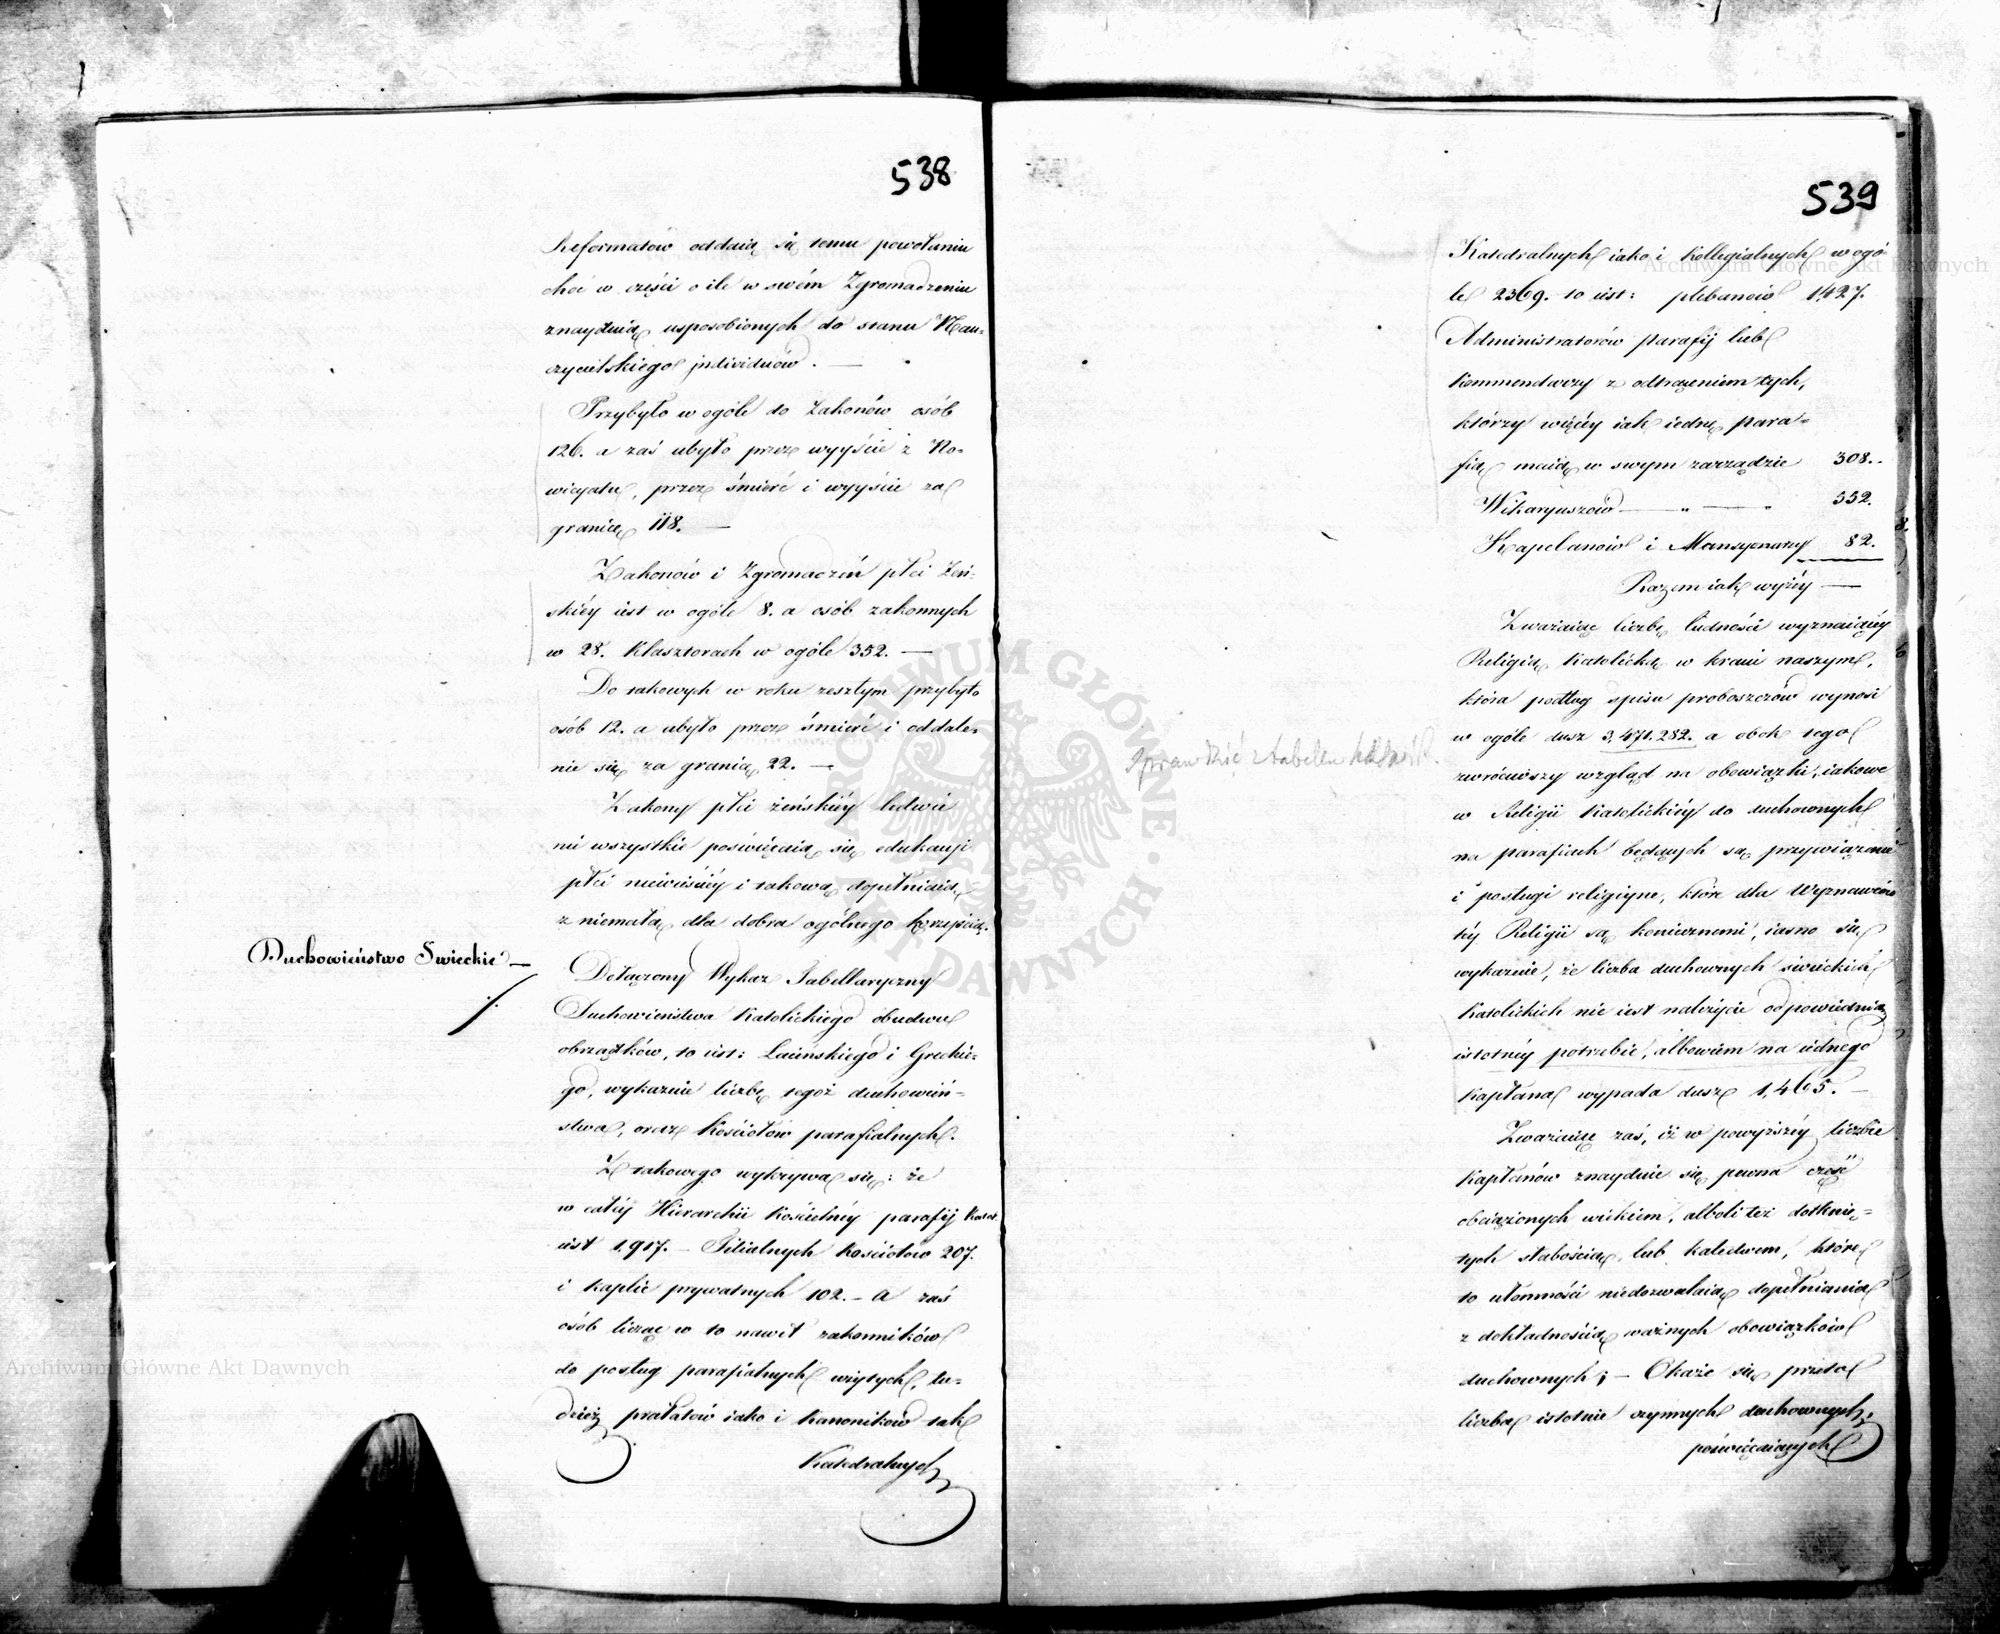 538
Reformatów oddaią się temu powołaniu
choć w części o ile w swém Zgromadzeniu
znayduią usposobionych do stanu Nau-
czycielskiego jndividuów. —
Przybyło w ogóle do Zakonów osób
126. a zaś ubyło przez wyyście z No-
wicyatu, przez śmierć i wyyście za
granicę 118. —
Zakonów i Zgromadzeń płci Żeń-
skiéy iest w ogóle 8. a osób zakonnych
w 28. Klasztorach w ogóle 352. —
Do takowych w roku zeszłym przybyło
osób 12. a ubyło przez śmierć i oddale-
nie się za granicę 22. —
Zakony płci żeńskiéy ledwie
nie wszystkie poświęcaią się edukacji
płci niewieściéy i takową dopełniaią
z niemałą dla dobra ogólnego korzyścią.
Duchowieństwo Swieckie —
Dołączony Wykaz Tabellaryczny
Duchowieństwa Katolickiego obudwu
obrządków, to iest: Łacińskiego i Greckie-
go, wykazuie liczbę tegoż duchowień-
stwa, oraz Kościołów parafialnych.
Z takowego wykrywa się: że
w całéy Hierarchii Kościelnéy parafij Katol
iest 1,917. — Filialnych Kościołów 207.
i kaplic prywatnych 102. — A zaś
osób licząc w to nawet zakonników
do posług parafialnych użytych, tu-
dzież prałatów iako i Kanoników tak
Katedralnych
539
Katedralnych iako i Kollegialnych w ogó-
le 2369. to iest: plebanów 1,427.
Administratorów parafij lub
Kommendarzy z odtrąceniem tych,
którzy więcéy iak iednę para-
fią maią w swym zarządzie 308.
Wikaryuszów — „ — 552.
Kapelanów i Mansyonarzy 82.
Razem iak wyżéy —
Zważaiąc liczbę ludności wyznaiącéy
Religią Katolicką w kraiu naszym,
która podług spisu proboszczów wynosi
w ogóle dusz 3,471.282. a obok tego
Sprawdzić z tabellą
zwróciwszy wzgląd na obowiązki, iakowe
w Religii Katolickiéy do duchownych
na parafiach będących są przywiązane
i posługi religiyne, które dla Wyznawców
téy Religii są koniecznemi, iasno się
wykazuie, że liczba duchownych świeckich
Katolickich nie iest należycie odpowiednia
istotnéy potrzebie, albowiem na iednego
Kapłana wypada dusz 1,465. —
Zważaiąc zaś, iż w powyższéy liczbie
Kapłanów znayduie się pewna część
obciążonych wiekiem, alboli też dotknię-
tych słabością, lub kalectwem, które
to ułomności niedozwalaią dopełniania
z dokładnością ważnych obowiązków
duchownych; — Okaże się przeto
liczba istotnie czynnych duchownych,
poświęcaiących
Archiwum Główne Akt Dawnych
Archiwum Główne Akt Dawnych
ARCHIWUM GŁÓWNE AKT DAWNYCH